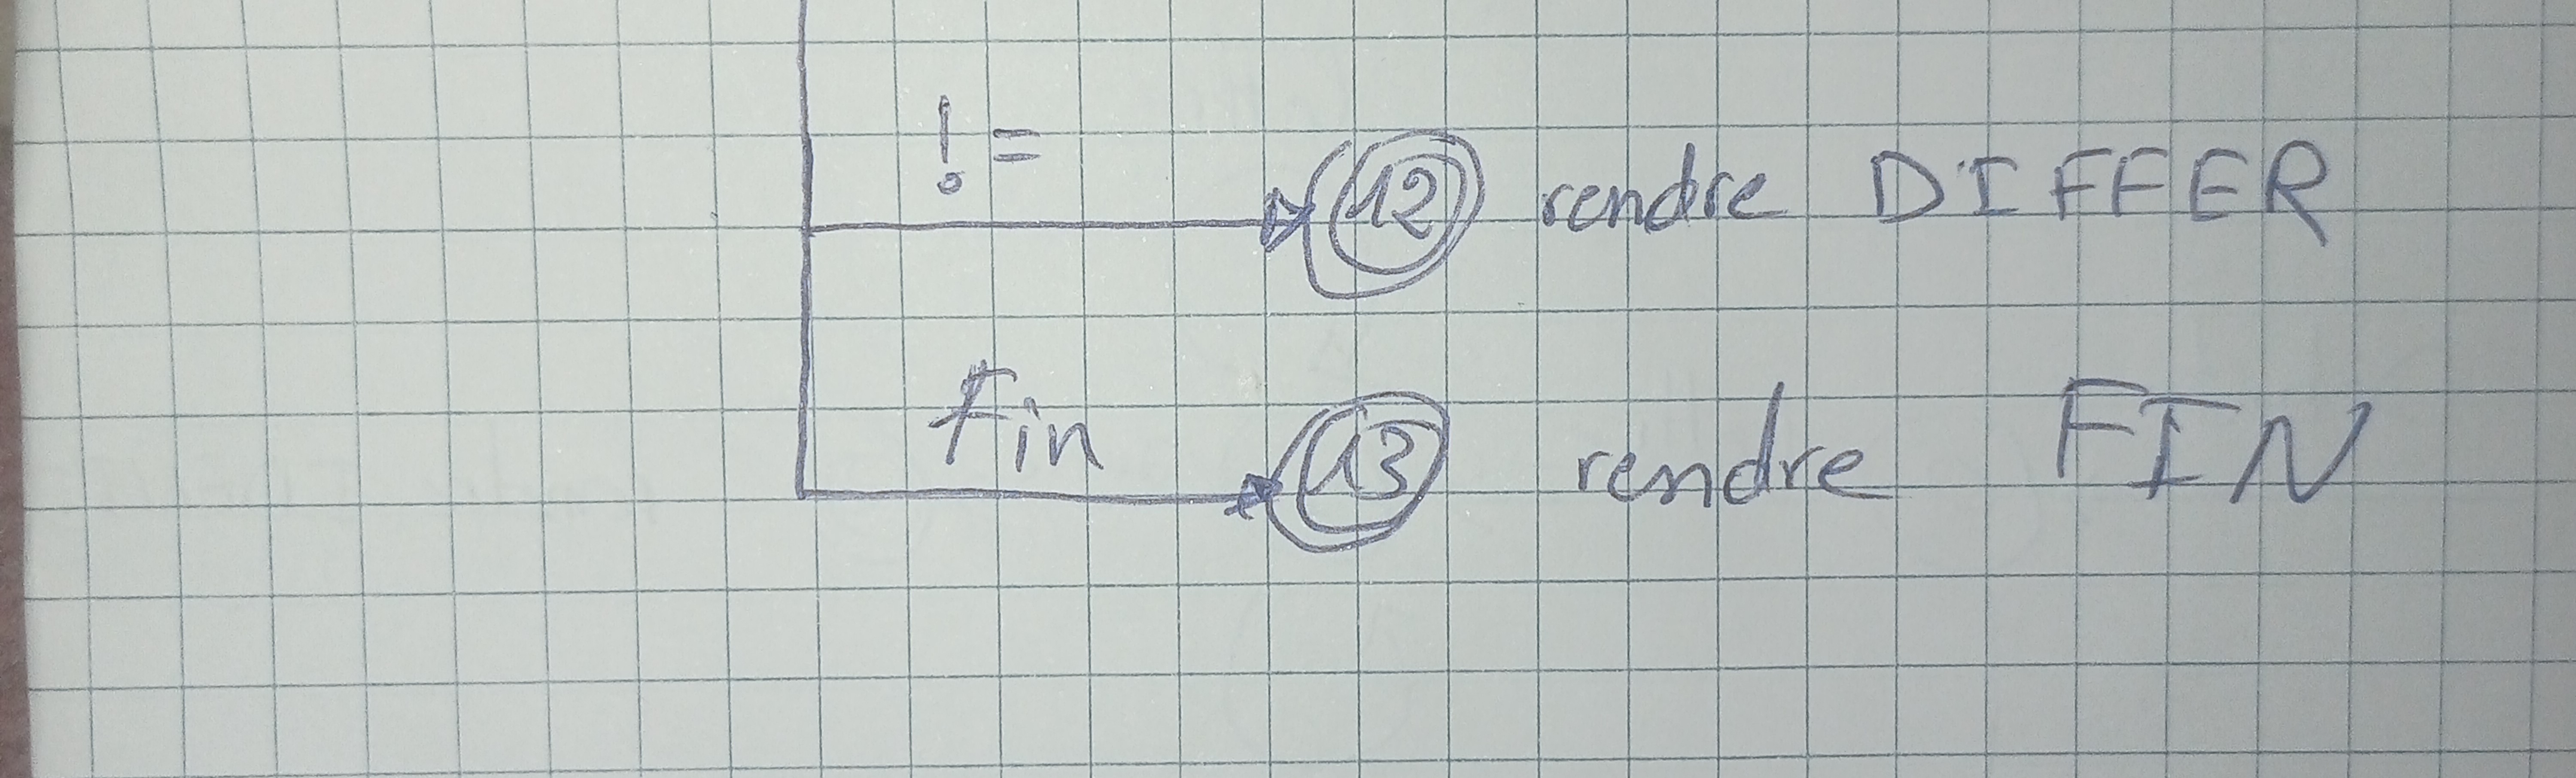 !=
12 rendre DIFFER
Fin
13 rendre FIN